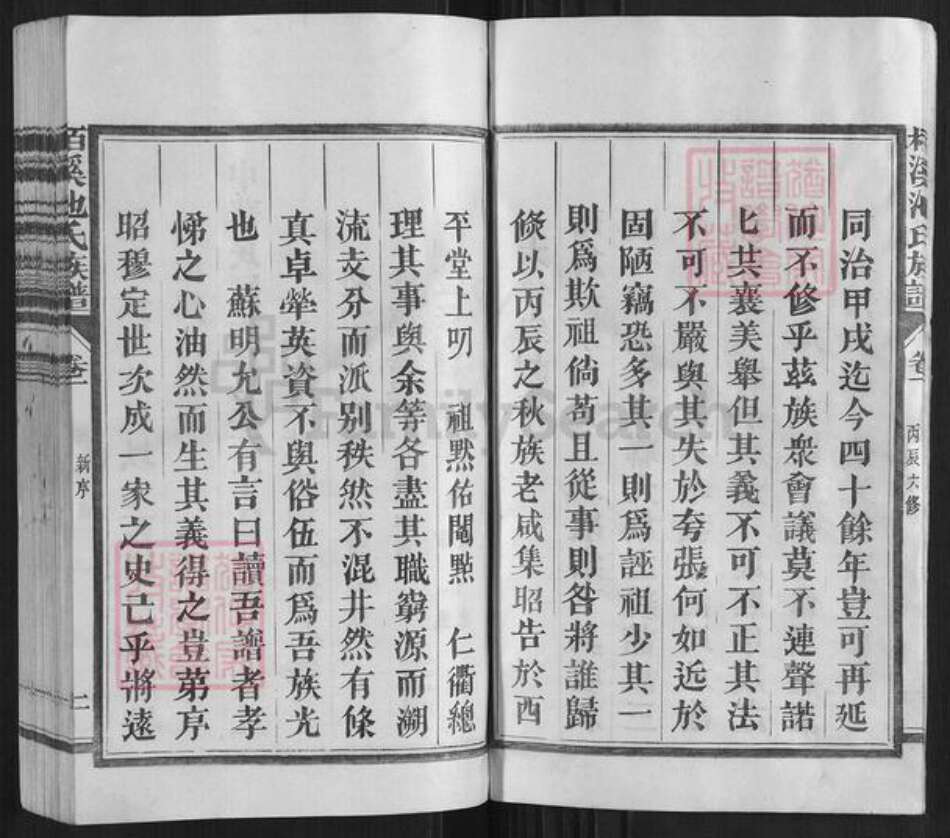 同治甲戌迄今四十餘年豈可再延
而不修乎茲族衆會議莫不連聲諾
匕共襄美舉但其義不可不正其法
不可不嚴與其失於夸張何如近於
固陋竊恐多其一則爲誣祖少其一
則爲欺祖倘苟且從事則咎將誰歸
倐以丙辰之秋族老咸集昭告於酉
丙辰六修
卷一
平堂上叨 祖黙佑閹㸃 仁衢總
理其事與余等各盡其職窮源而溯
流支分而派别秩然不混井然有條
真卓犖英資不與俗伍而爲吾族光
也 蘇明允公有言曰讀吾譜者孝
悌之心油然而生其義得之豈第序
昭穆定世次成一家之史已乎將遠
柏溪池氏族譜
卷一
新序
二
FamilySearch